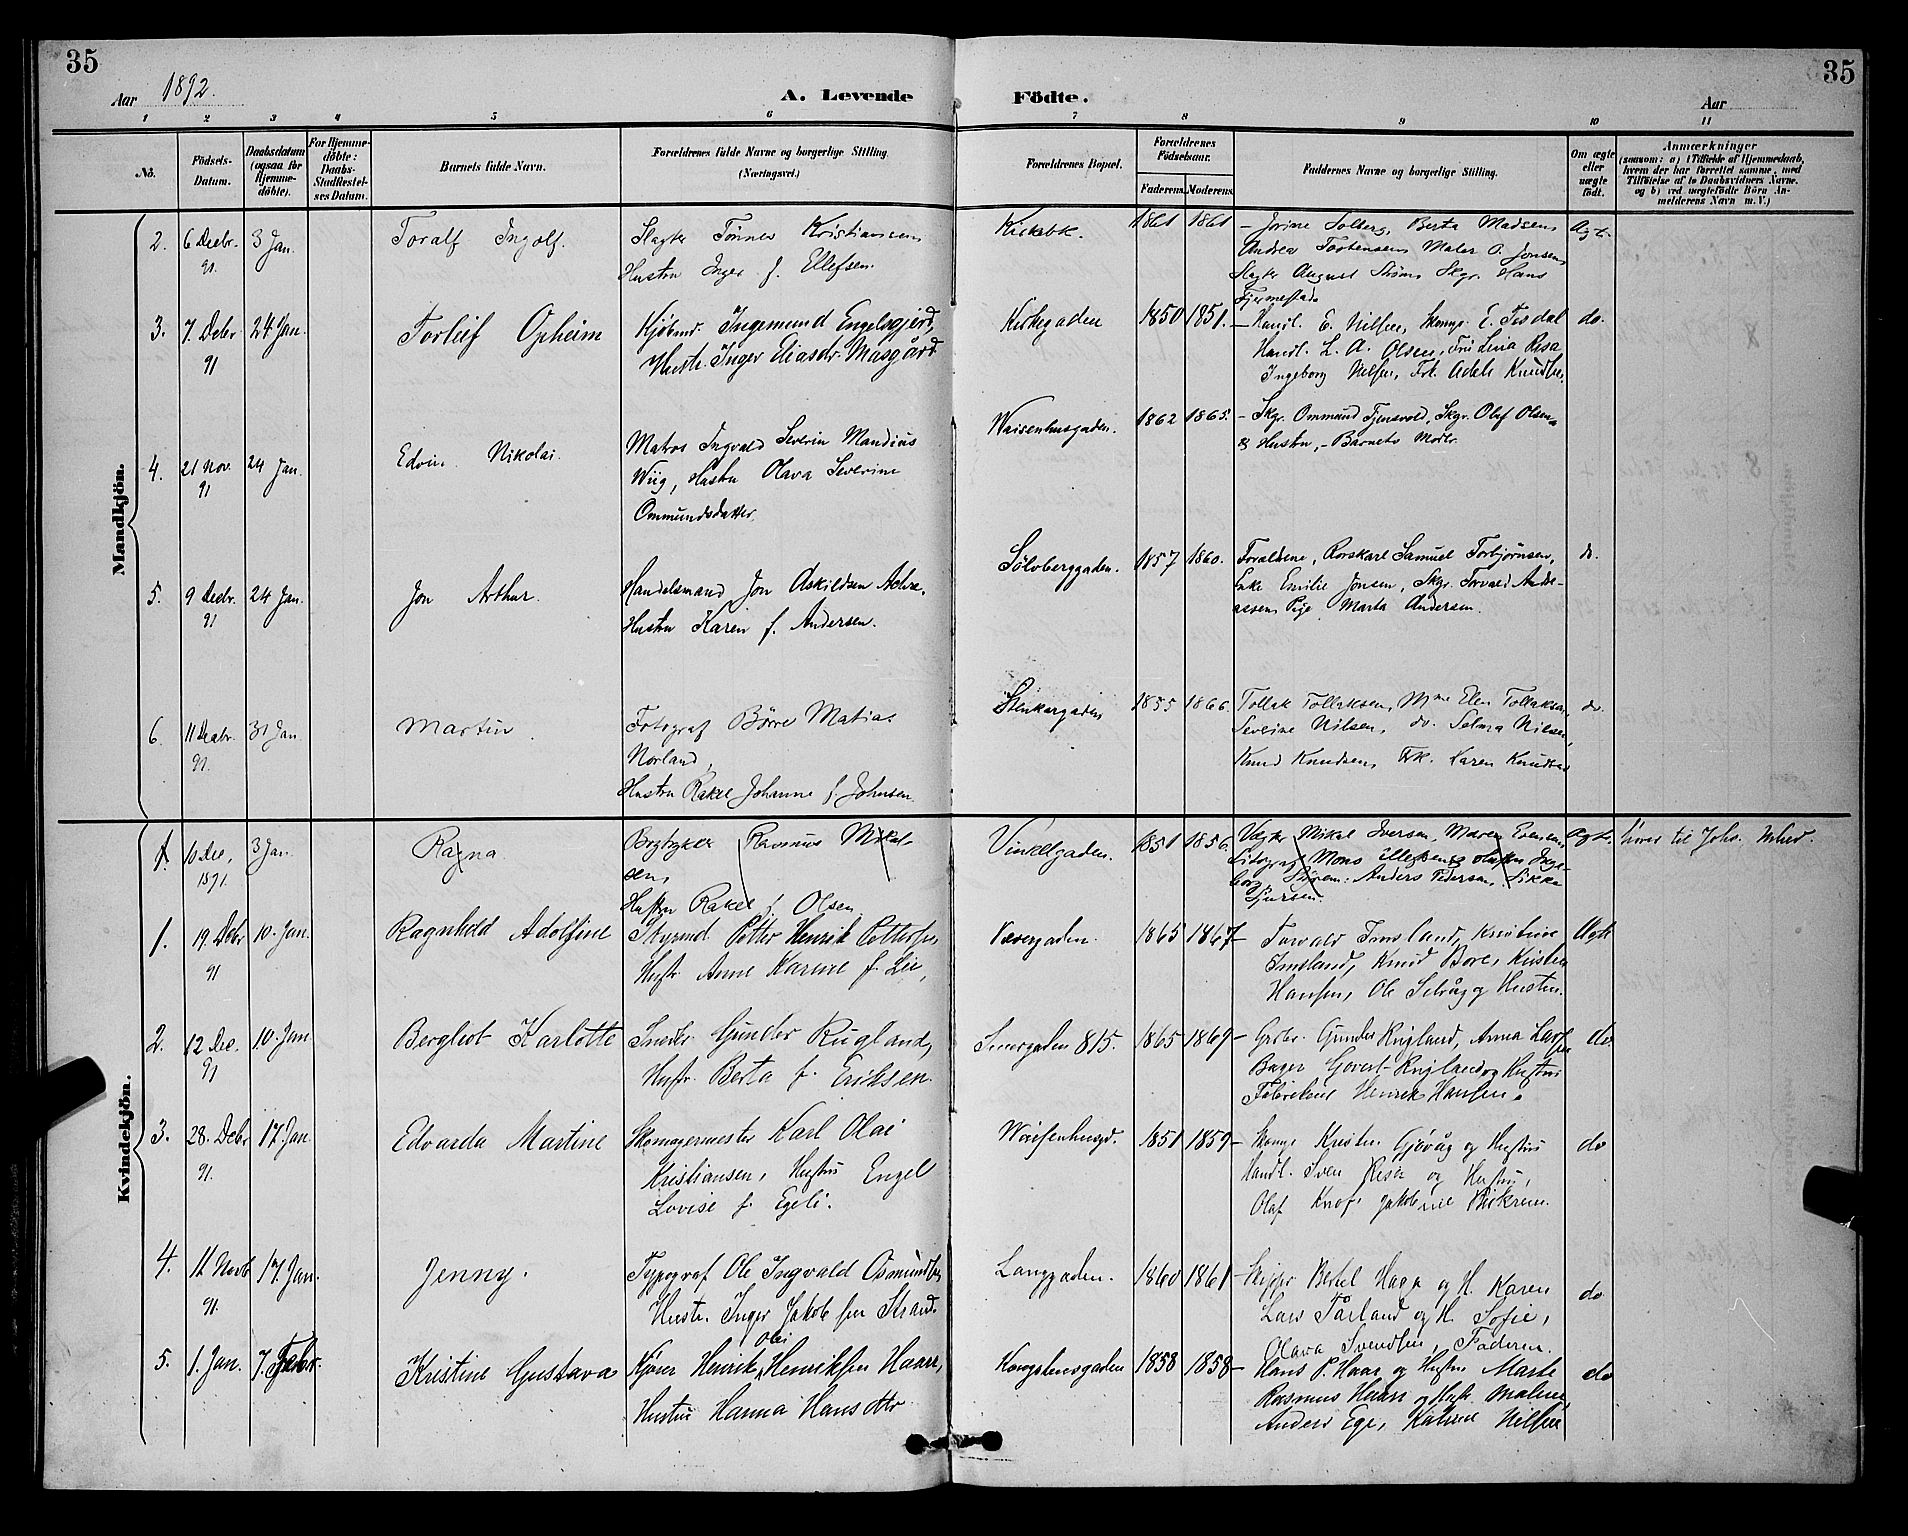 35
35
Aar 1892.
A. Levende
Födte.
Aar
1 2 3 4 5 6 7 8 9 10 11
Nö.
Födsels-
Datum.
Daabsdatum
(ogsaa for
Hjemme-
döbte).
For Hjemme-
döbte:
Daabs-
Stadfæstel-
ses Datum.
Barnets fulde Navn.
Forældrenes fulde Navne og borgerlige Stilling.
(Næringsvei.)
Forældrenes Bopæl.
Forældrenes
Födselsaar.
Faderens. Moderens.
Faddernes Navne og borgerlige Stilling.
Om ægte
eller
uægte
födt.
Anmærkninger
(saasom: a) i Tilfælde af Hjemmedaab,
hvem der har forrettet samme, med
Tilföielse af to Daabsvidners Navne,
og b) ved uægtefödte Börn An-
melderens Navn m. V.)
Mandkjön.
2. 6 Decbr. 91. 3 Jan. Toralf Ingolf.
Slagter Tönnes Kristiansen
Hustru Inger f. Ellefsen.
Kirkebk. 1861 1861
- Jorine Solberg, Berta Madsen
Andrea Torstensen, Maler O. Jonsen,
Slagter August Ström Skgr. Hans
Fjermestad. Ægt.
3. 7. Decbr 91 24 Jan. Torleif Opheim
Kjöbmd. Ingemund Engelsgjerd,
Hustr. Inger Eliasdr. Masgård
Kirkegaden 1850 1851.
- Handl. E. Nilsen, Skomgr. E. Tisdal
Handl. L. A. Olsen, Frü Lina Risa
Ingeborg Nilsen, Frk. Adele Knudsen. do.
4. 21 Nov. 91 24 Jan. Edvin Nikolai.
Matros Ingvald Severin Mandius
Wiig, Hustru Olava Severine
Ommundsdatter.
Waisenhusgaden. 1862 1865.
- Skgr. Ommund Tjensvold, Skgr. Olaf Olsen
& Hustru, - Barnets Moder.
5. 9 Decbr. 91 24 Jan. Jon Arthur.
Handelsmand Jon Askildsen
Hustru Karen f. Andersen.
Sölvberggaden. 1857 1860.
Forældrene, Rorskarl Samuel Torbjörnsen,
Enke Emilie Jonsen, Skgr. Torvald Andre-
assen, Pige Marta Andersen. do.
6. 11 Decbr. 91. 31 Jan Martin
Fotograf Börre Matias
Norland,
Hustru Rakel Johanne f. Johnsen.
Stenkargaden 1855 1866.
Tollak Tollaksen, Mme Elen Tollaksen,
Severine Nilsen, do. Selma Nilsen,
Knud Knudsen, Frk. Karen Knudsen do.
Kvindekjön.
1. 10 Dec. 1891. 3 Jan. Ragna.
Bogtrykker Rasmus Mikal-
sen,
Hustru Rakel f. Olsen
Vinkelgaden. 1851 1856.
Vægter Mikal Iversen, Maren Evensen
Litograf Mons Ellefsen & Inge-
borg : Anders Pedersen, Sikke
Sjursen. Ægt. hörer til Johs. Mhed.
1. 19. Decbr 91 10. Jan. Ragnhild Adolfine
Styrmd. Petter Henrik Pettersen,
Hustr. Anne Karine f. Lie,
Vævergaden. 1865 1867
- Torvald Imsland, Kristine
Imsland, Knud Bore, Kristen
Hansen, Ole Selvåg og Hustru. Ægte
2. 12 Dec. 91 10. Jan Bergliot Karlotte
Snedkr Gunder Rugland,
Hustr. Berta f. Eriksen.
815. 1865 1869
- Gunder Rugland, Anna Larsen
Bager Govert Rugland og Hustru
Henrik Hansen. do.
3. 28. Decbr 91. 17. Jan Edvarda Martine
Skomagermester Karl Olai
Kristiansen, Hustru Engel
Lovise f. Egeli.
Waisenhusgd. 1851 1859
- Skomgr Kristen Gjövåg og Hustru
Handl. Sven Risa og Hustru,
Olaf Jakobine Birkrem. do
4. 11 Novb 91. 17. Jan. Jenny.
Typograf Ole Ingvald Osmundsen
Hustr. Inger Jakobsen Strand.
Langgaden. 1860 1861
- Skipper Bertel Haga og H. Karen
Lars Tårland og H. Sofie,
Olava Svendsen, Faderen. do
5. 1. Jan. 7. Febr. Kristine Gustava
Kjörer Henrik Olai Henriksen Haarr,
Hustru Hanna Hansdtr.
Kongstensgaden 1858 1858
- Hans P. Haar og Hustru Marte
Rasmus Haarr og Hustr. Malene
Anders Ege, Nilsen do